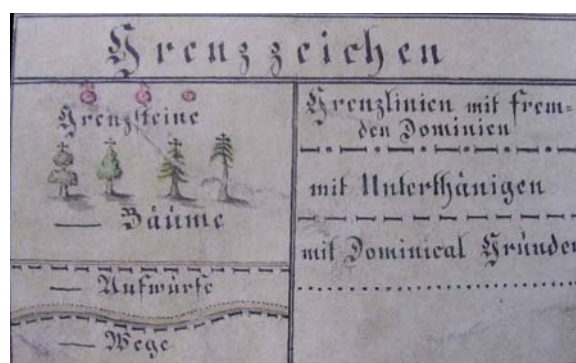 Grenzzeichen
Grenzsteine
— Bäume
— Aufwürfe
— Wege
Grenzlinien mit frem=
den Dominien
mit Unterthänigen
mit Dominical Gründen